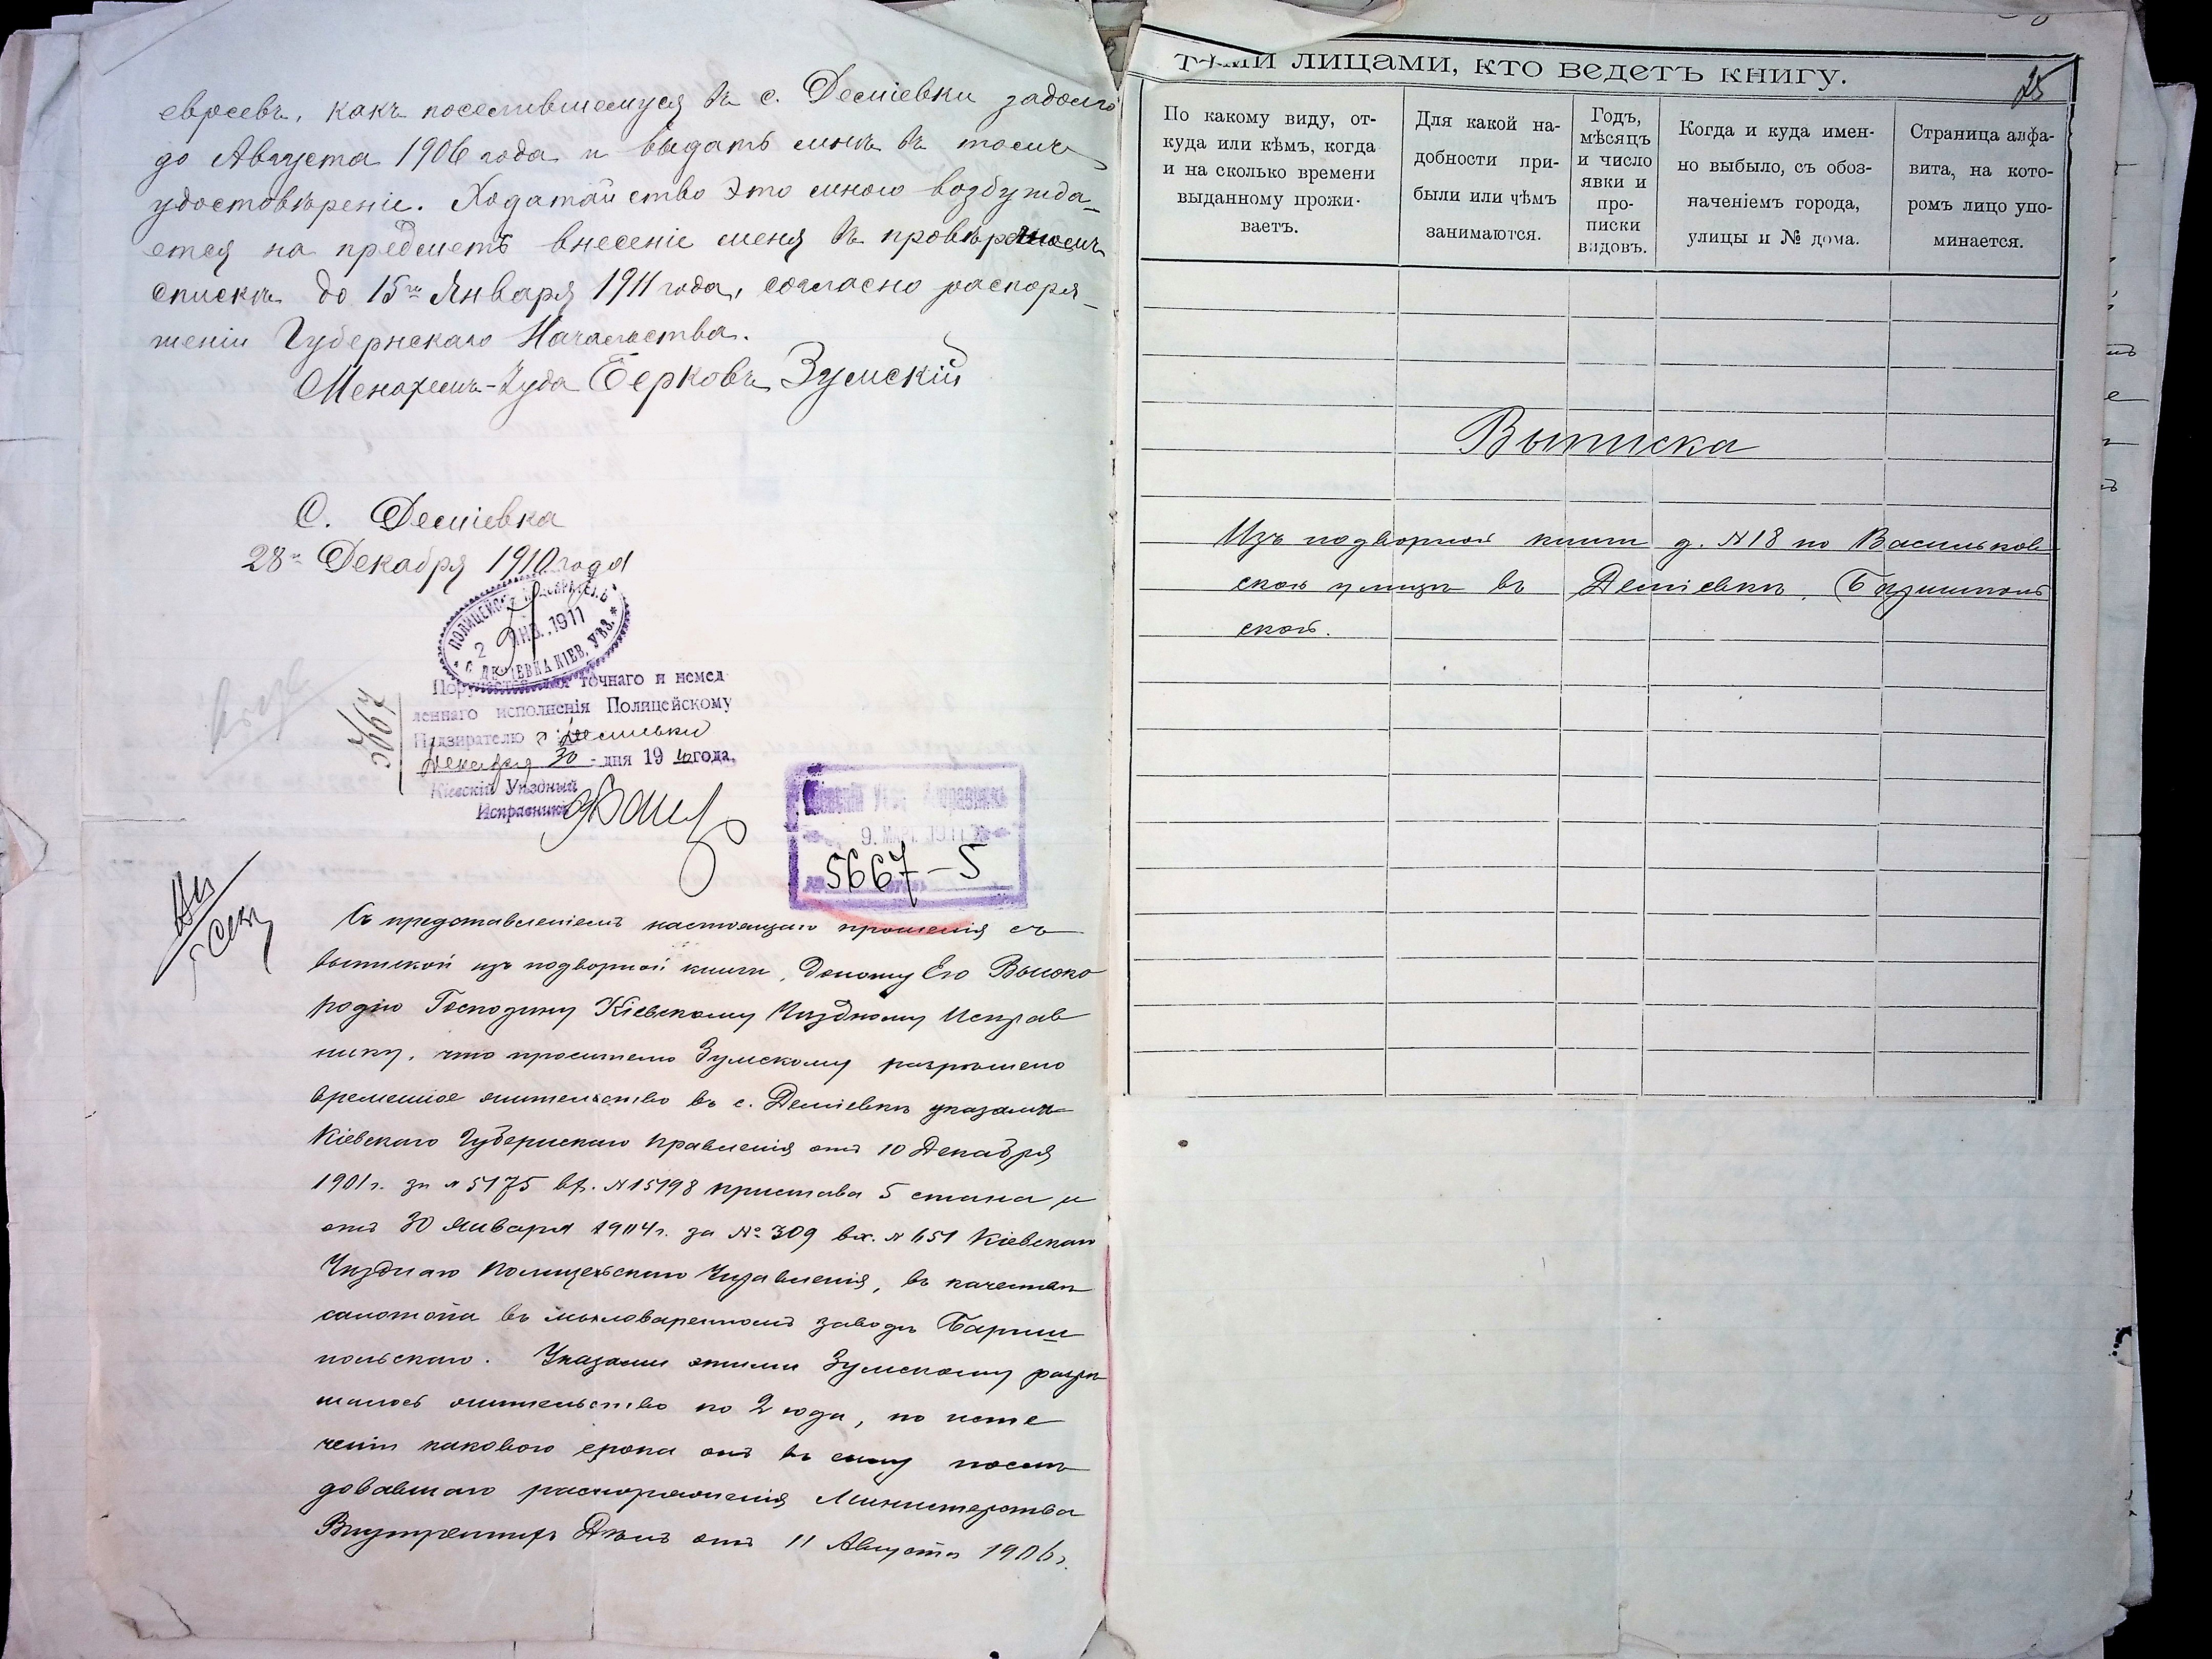 евреевъ, какъ поселившемуся въ с. Деміевки задолго
до Августа 1906 года и выдать мнѣ въ томъ
удостовѣреніе. Ходатайство это мною возбужда-
ется на предметъ внесеніе меня въ провѣрочномъ
списки до 15го Января 1911 года, согласно распоря-
женіи Губернскаго Начальства.
Менахемъ-Іуда Берковъ Зумскій
С. Деміевка
28го Декабря 1910 года
ПОЛИЦЕЙСКІЙ НАДЗИРАТЕЛЬ
2 ЯНВ. 1911
С. ДЕМІЕВКА КІЕВ. УѢЗ.
5667
Поручается для точнаго и немед
леннаго исполненія Полицейскому
Надзирателю с. Деміевки
Декабря 30 - дня 1910 года.
Кіевскій Уѣздный
Исправникъ
Кіевскій Уѣзд. Исправникъ
9. МАР. 1911
5667-5
Съ представленіемъ настоящаго прошенія съ
выпиской изъ подворной книги, доношу Его Высоко
родію Господину Кіевскому Уѣздному Исправ
нику, что просителю Зумскому разрѣшено
временное жительство въ с. Деміевкѣ указами
Кіевскаго Губернскаго Правленія отъ 10 Декабря
1901 г. за № 5175 вх. № 15198 пристава 5 стана и
отъ 30 Января 1904 г. за № 309 вх. № 651 Кіевскаго
Уѣзднаго Полицейскаго Управленія, въ качествѣ
салотопа въ мыловаренномъ заводѣ Бариш
польскаго. Указами этими Зумскому разрѣ
шалось жительство по 2 года, по исте
ченіи какового срока онъ въ силу послѣ
довавшаго распоряженія Министерства
Внутреннихъ Дѣлъ отъ 11 Августа 1906 г.
тѣми лицами, кто ведетъ книгу.
25
По какому виду, от-
куда или кѣмъ, когда
и на сколько времени
выданному прожи-
ваетъ.
Для какой на-
добности при-
были или чѣмъ
занимаются.
Годъ,
мѣсяцъ
и число
явки и
про-
писки
видовъ.
Когда и куда имен-
но выбыло, съ обоз-
наченіемъ города,
улицы и № дома.
Страница алфа-
вита, на кото-
ромъ лицо упо-
минается.
Выписка
Изъ подворной книги д. № 18 по Васильков
ской улицѣ въ Деміевкѣ, Боришполь
ской.